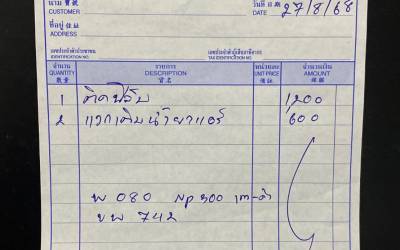 นาม 寶號
CUSTOMER
วันที่ 日期
DATE 27/8/68
ที่อยู่ 住址
ADDRESS
เลขประจำตัวประชาชน
IDENTIFICATION NO.
เลขประจำตัวผู้เสียภาษีอากร
TAX IDENTIFICATION NO.
จำนวน รายการ หน่วยละ จำนวนเงิน
QUANTITY DESCRIPTION UNIT PRICE AMOUNT
數量 貨名 價錢 銀碼
1 ติดฟิล์ม 1200
2 แวคเติมน้ำยาแอร์ 600
พ 080 NP 300 เทา-ดำ
ขพ 742